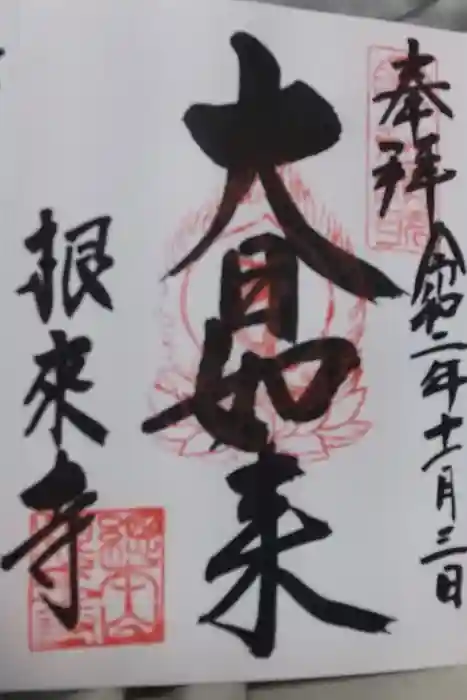 奉拝
令和二年十一月三日
大日如来
根來寺